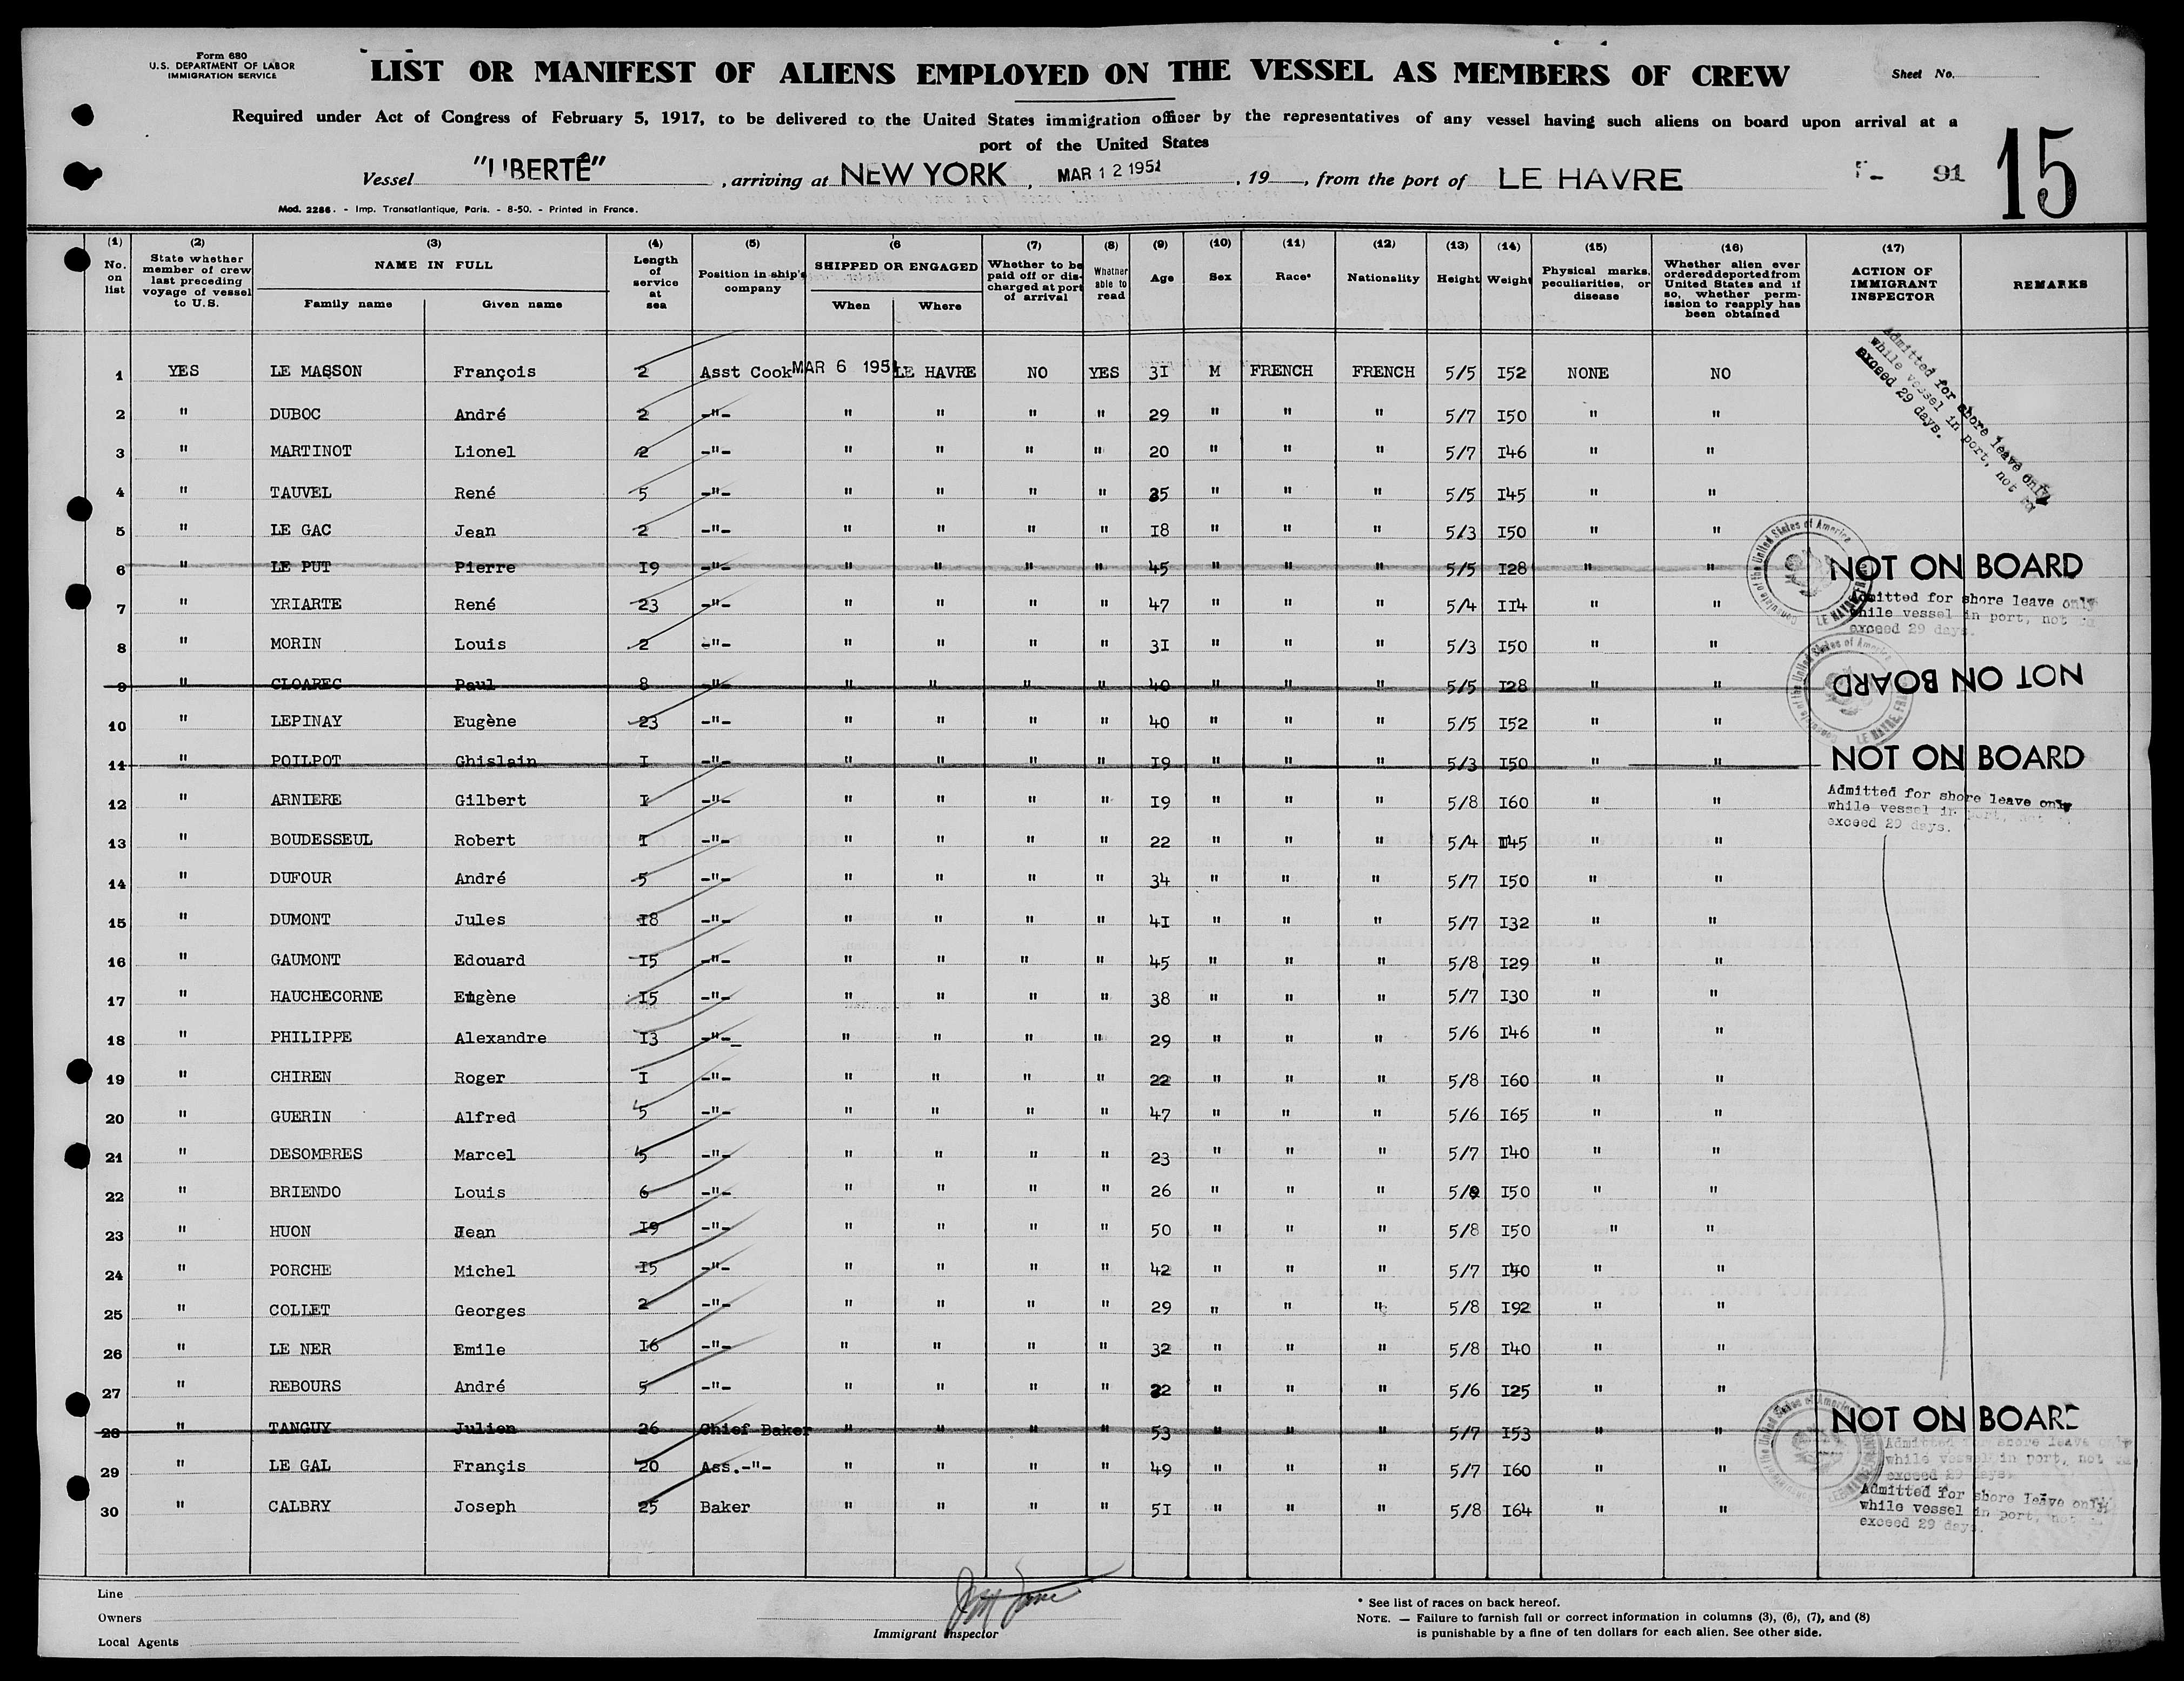 Form 680
U.S. DEPARTMENT OF LABOR
IMMIGRATION SERVICE
LIST OR MANIFEST OF ALIENS EMPLOYED ON THE VESSEL AS MEMBERS OF CREW
Sheet No.
Required under Act of Congress of February 5, 1917, to be delivered to the United States immigration officer by the representatives of any vessel having such aliens on board upon arrival at a
port of the United States
Vessel "LIBERTÉ", arriving at NEW YORK, MAR 12 1951, 19, from the port of LE HAVRE 91 15
Mod. 2286. - Imp. Transatlantique, Paris. - 8-50. - Printed in France.
(1) No. on list
(2) State whether member of crew last preceding voyage of vessel to U.S.
(3) NAME IN FULL Family name Given name
(4) Length of service at sea
(5) Position in ship's company
(6 SHIPPED OR ENGAGED When Where
(7) Whether to be paid off or discharged at port of arrival
(8) Whether able to read
(9) Age
(10) Sex
(11) Race*
(12) Nationality
(13) Height
(14) Weight
(15) Physical marks, peculiarities, or disease
(16) Whether alien ever ordered deported from United States and if so, whether permission to reapply has been obtained
(17) ACTION OF IMMIGRANT INSPECTOR
REMARKS
1 YES LE MASSON François 2 Asst Cook MAR 6 1951 LE HAVRE NO YES 31 M FRENCH FRENCH 5/5 152 NONE NO
Admitted for shore leave only
while vessel in port, not to
exceed 29 days.
2 " DUBOC André 2 -"- " " " " 29 " " " 5/7 150 " "
3 " MARTINOT Lionel 2 -"- " " " " 20 " " " 5/7 146 " "
4 " TAUVEL René 5 -"- " " " " 35 " " " 5/5 145 " "
5 " LE GAC Jean 2 -"- " " " " 18 " " " 5/3 150 " "
6 " LE PUT Pierre 19 -"- " " " " 45 " " " 5/5 128 " " NOT ON BOARD
7 " YRIARTE René 23 -"- " " " " 47 " " " 5/4 114 " "
Admitted for shore leave only
while vessel in port, not to
exceed 29 days.
8 " MORIN Louis 2 -"- " " " " 31 " " " 5/3 150 " "
9 " CLOAREC Paul 8 -"- " " " " 40 " " " 5/5 128 " " NOT ON BOARD
10 " LEPINAY Eugène 23 -"- " " " " 40 " " " 5/5 152 " "
11 " POILPOT Ghislain 1 -"- " " " " 19 " " " 5/3 150 " " NOT ON BOARD
12 " ARNIERE Gilbert 1 -"- " " " " 19 " " " 5/8 160 " "
Admitted for shore leave only
while vessel in port, not to
exceed 29 days.
13 " BOUDESSEUL Robert 1 -"- " " " " 22 " " " 5/4 145 " "
14 " DUFOUR André 5 -"- " " " " 34 " " " 5/7 150 " "
15 " DUMONT Jules 18 -"- " " " " 41 " " " 5/7 132 " "
16 " GAUMONT Edouard 15 -"- " " " " 45 " " " 5/8 129 " "
17 " HAUCHECORNE Eugène 15 -"- " " " " 38 " " " 5/7 130 " "
18 " PHILIPPE Alexandre 13 -"-_ " " " " 29 " " " 5/6 146 " "
19 " CHIREN Roger 1 -"- " " " " 22 " " " 5/8 160 " "
20 " GUERIN Alfred 5 -"- " " " " 47 " " " 5/6 165 " "
21 " DESOMBRES Marcel 5 -"- " " " " 23 " " " 5/7 140 " "
22 " BRIENDO Louis 6 -"- " " " " 26 " " " 150 " "
23 " HUON Jean 19 -"- " " " " 50 " " " 5/8 150 " "
24 " PORCHE Michel 15 -"- " " " " 42 " " " 5/7 140 " "
25 " COLLET Georges 2 -"- " " " " 29 " " " 5/8 192 " "
26 " LE NER Emile 16 -"- " " " " 32 " " " 5/8 140 " "
27 " REBOURS André 5 -"- " " " " 22 " " " 5/6 125 " "
28 " TANGUY Julien 26 Chief Baker " " " " 53 " " " 5/7 153 " " NOT ON BOARD
29 " LE GAL Françis 20 Ass.-"- " " " " 49 " " " 5/7 160 " "
Admitted for shore leave only
while vessel in port, not to
exceed 29 days.
30 " CALBRY Joseph 25 Baker " " " " 51 " " " 5/8 164 " "
Admitted for shore leave only
while vessel in port, not to
exceed 29 days.
Consulate of the United States of America LE HAVRE, FRANCE
Line
Owners
Local Agents
Immigrant Inspector
* See list of races on back hereof.
NOTE. — Failure to furnish full or correct information in columns (3), (6), (7), and (8)
is punishable by a fine of ten dollars for each alien. See other side.